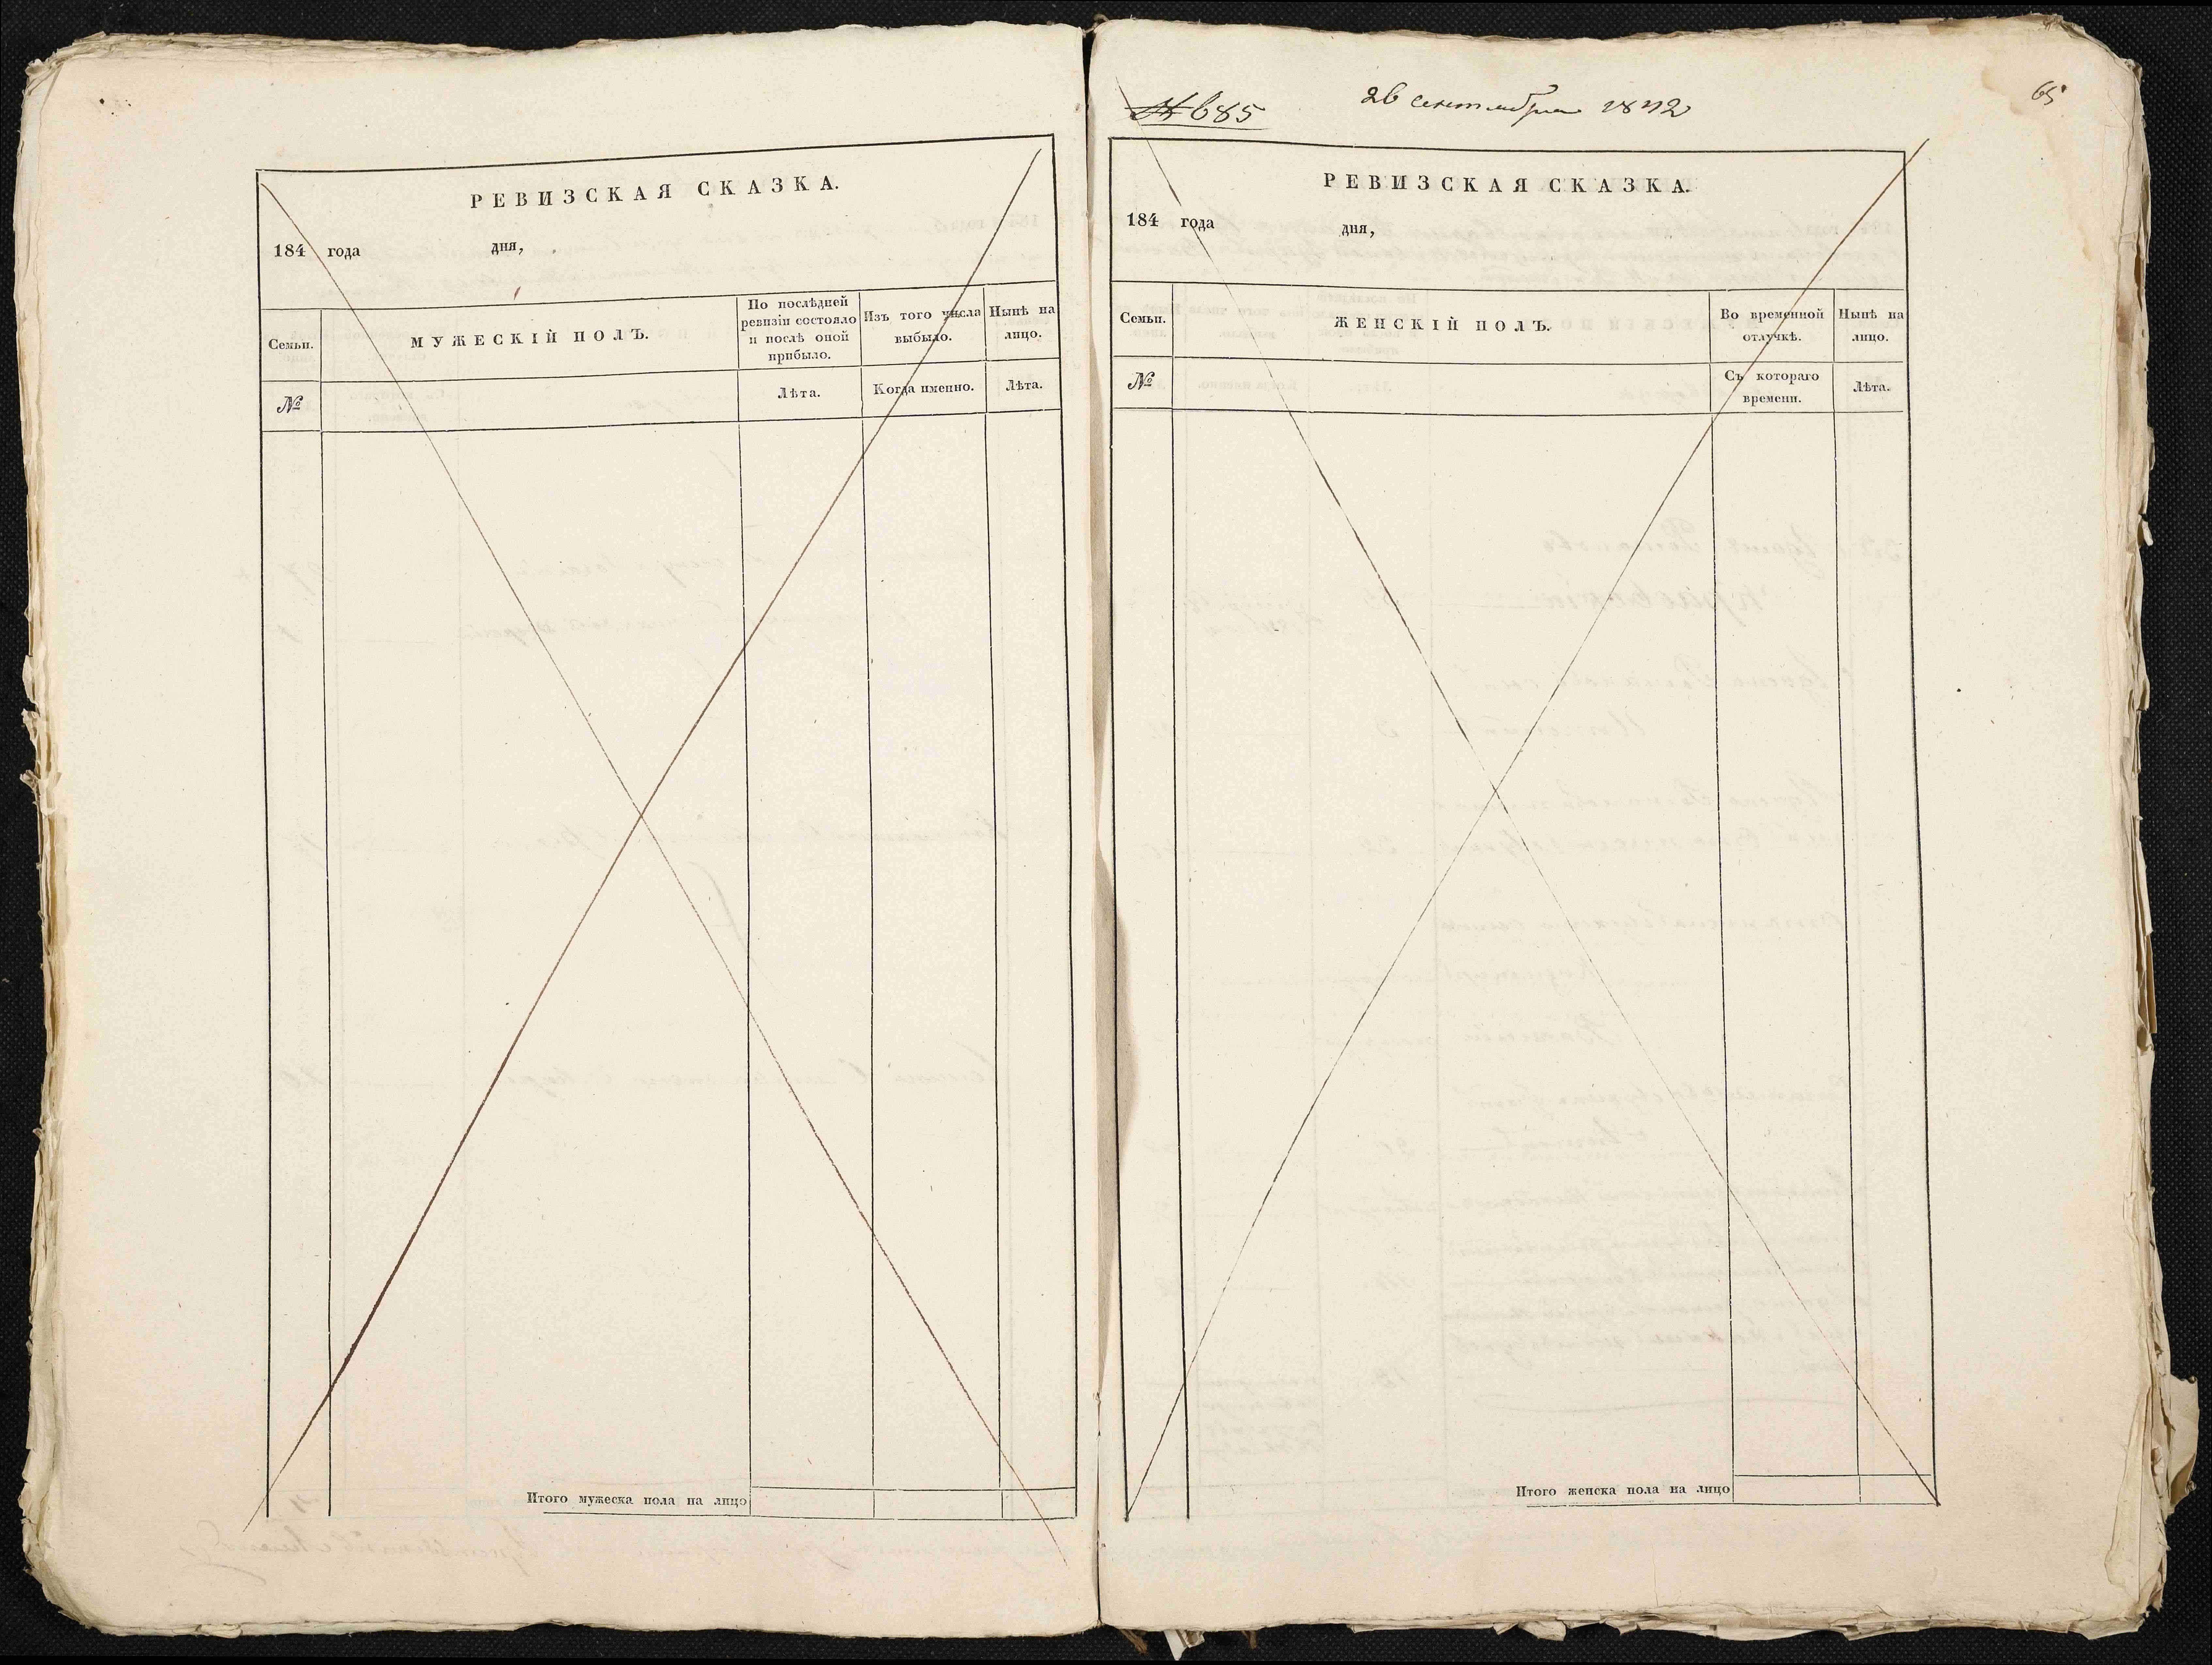 РЕВИЗСКАЯ СКАЗКА.
184 года дня,
Семьи.
МУЖЕСКІЙ ПОЛЪ.
По послѣдней
ревизіи состояло
и послѣ оной
прибыло.
Изъ того числа
выбыло.
Нынѣ на
лицо.
№
Лѣта.
Когда именно.
Лѣта.
Итого мужеска пола на лицо
№ 685
26 сентября 1842
65
РЕВИЗСКАЯ СКАЗКА.
184 года дня,
Семьи.
ЖЕНСКІЙ ПОЛЪ.
Во временной
отлучкѣ.
Нынѣ на
лицо.
№
Съ котораго
времени.
Лѣта.
Итого женска пола на лицо